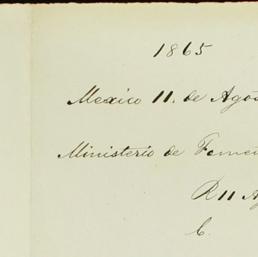 1865
Mexico 11. de Ago
Ministerio de Fome
R 11 A
C.